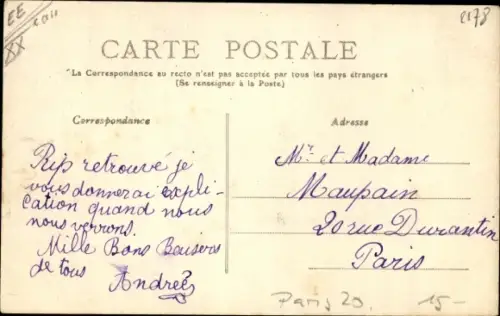 EE
XX
2178
CARTE POSTALE
"La Correspondance au recto n'est pas acceptée par tous les pays étrangers
(Se renseigner à la Poste)
Correspondance
Rip retrouvé je
vous donnerai expli-
cation quand nous
nous verrons.
Mille Bons Baisers
de tous
Andrée
Adresse
Mr. et Madame
Maupain
20 rue Durantin
Paris
Paris 20.
15-